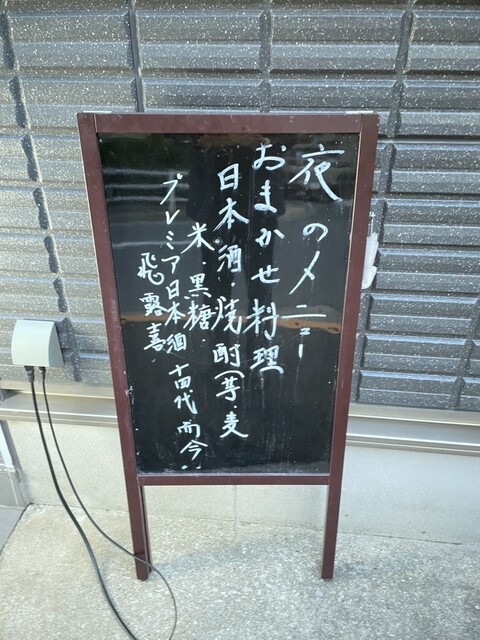 夜のメニュー
おまかせ料理
日本酒・焼酎(芋・麦
米・黒糖
プレミア日本酒 十四代 而今・・
飛露喜